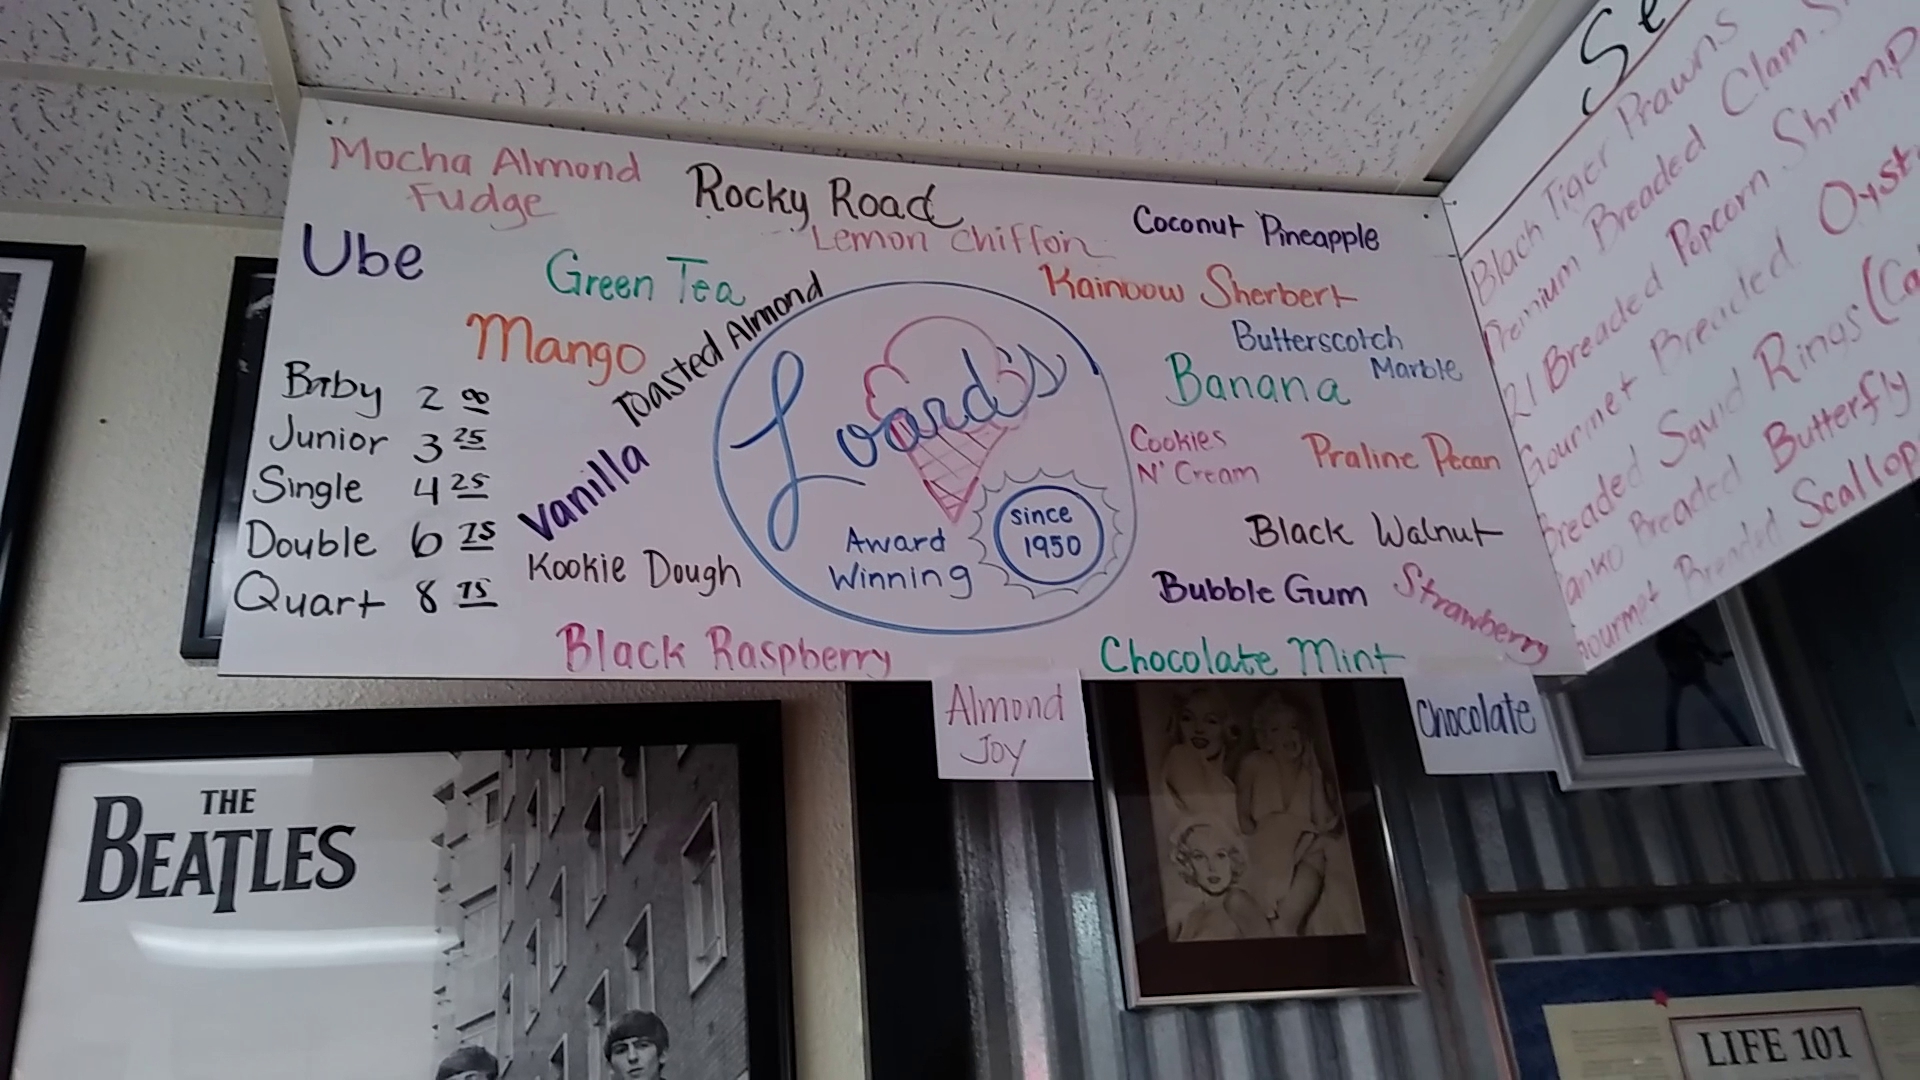 Mocha Almond
Fudge
Rocky Road
Lemon Chiffon
Coconut Pineapple
Ube
Green Tea
Toasted Almond
Rainbow Sherbert
Mango
Butterscotch
Marble
Banana
Baby 2 00
Junior 3 25
Single 4 25
Double 6 75
Quart 8 75
Vanilla
Kookie Dough
Loard's
Award
Winning
since
1950
Cookies
N' Cream
Praline Pecan
Black Walnut
Bubble Gum
Strawberry
Black Raspberry
Chocolate Mint
Almond
Joy
Chocolate
Black Tiger Prawns
Premium Breaded Clam
21 Breaded Popcorn Shrimp
Gourmet Breaded
Breaded Squid Rings
Panko Breaded Butterfly
Gourmet Breaded Scallop
THE
BEATLES
LIFE 101